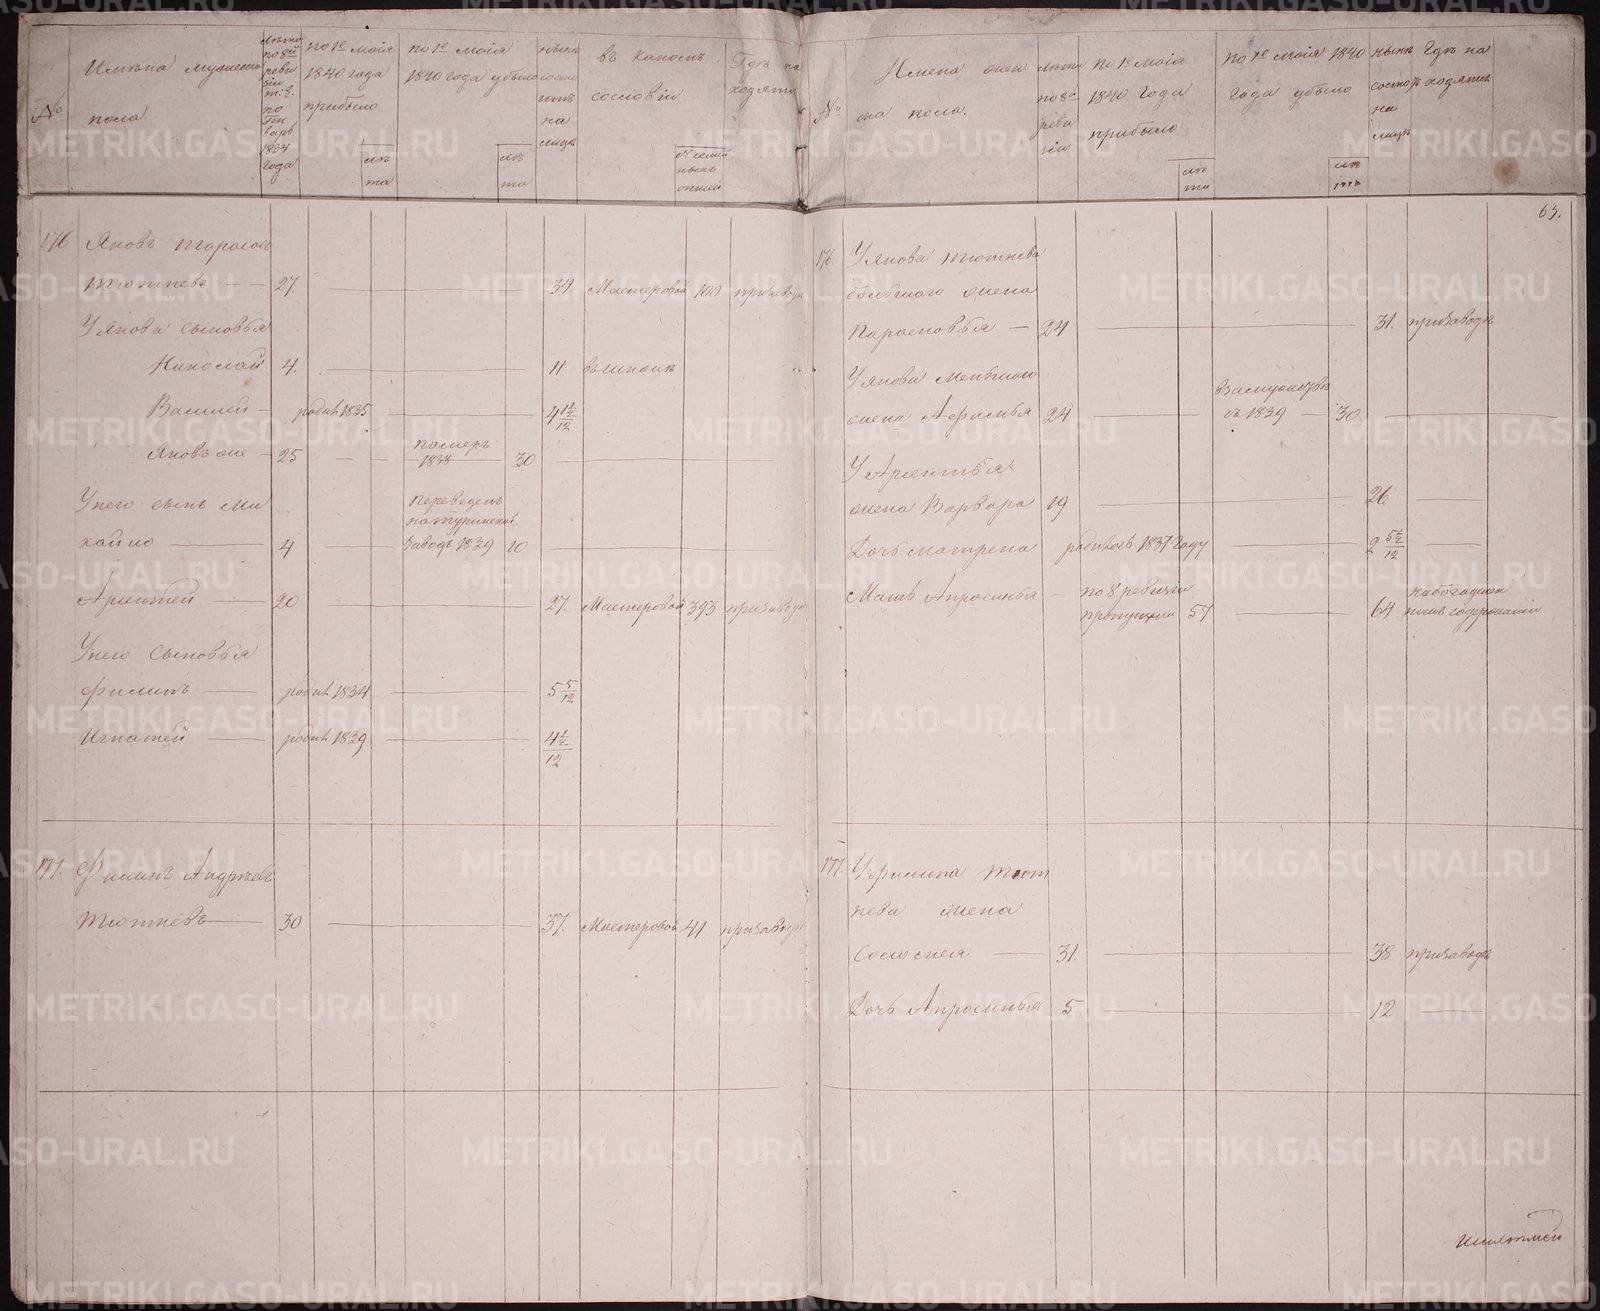 №
Имѣна мужеска
пола
лѣта
по 8й
реви
зіи
по
Ген
варь
1834
года
по 1е маія
1840 года
прибыло
лѣ
та
по 1е маія
1840 года убыло
лѣ
та
нынѣ
состо
итъ
на
лицо
въ какомъ
сословіи
№ семей
ныхъ
списка
Гдѣ на
ходятся
176 Яковъ Тарасовъ
Тютневъ 27 34 Мастеровой 100 при заводѣ
У Якова сыновья
Николай 4. 11
Василей родил 1835 4 1/2 12
Яковъ же 25 померъ 1838 30
У него сынъ Ми
хайло 4 переведенъ
на туринской
заводъ 1839 10
Арсентей 20 27. Мастеровой 393 при заводѣ
У него сыновья
Филипъ родил 1834 5 5/12
Игнатей родил 1839 4 1/2 12
177. Филипъ Андреевъ
Тютневъ 30 37. Мастеровой 41 при заводѣ
№
Имена жен
ска пола.
лѣта
по 8й
реви
зіи
по 1е маія
1840 года
прибыло
лѣ
та
по 1е маія 1840
года убыло
лѣ
та
нынѣ
состоитъ
на
лицо
Гдѣ на
ходятся
63.
176 У Якова Тютнева
большаго жена
Парасковья 24 31. при заводѣ
У Якова меньшаго
жена Афимья 24 взамужствѣ
съ 1839 30
У Арсентья
жена Варвара 19 26
Дочь Матрена родилась 1837 году 2 5 1/2 12
Мать Апросинья по 8 ревизіи
пропущена 57 64 на богадѣлен
номъ содержаніи
177. У Филипа Тют
нева жена
Соломея 31. 38 при заводѣ
Дочь Апросинья 5 12